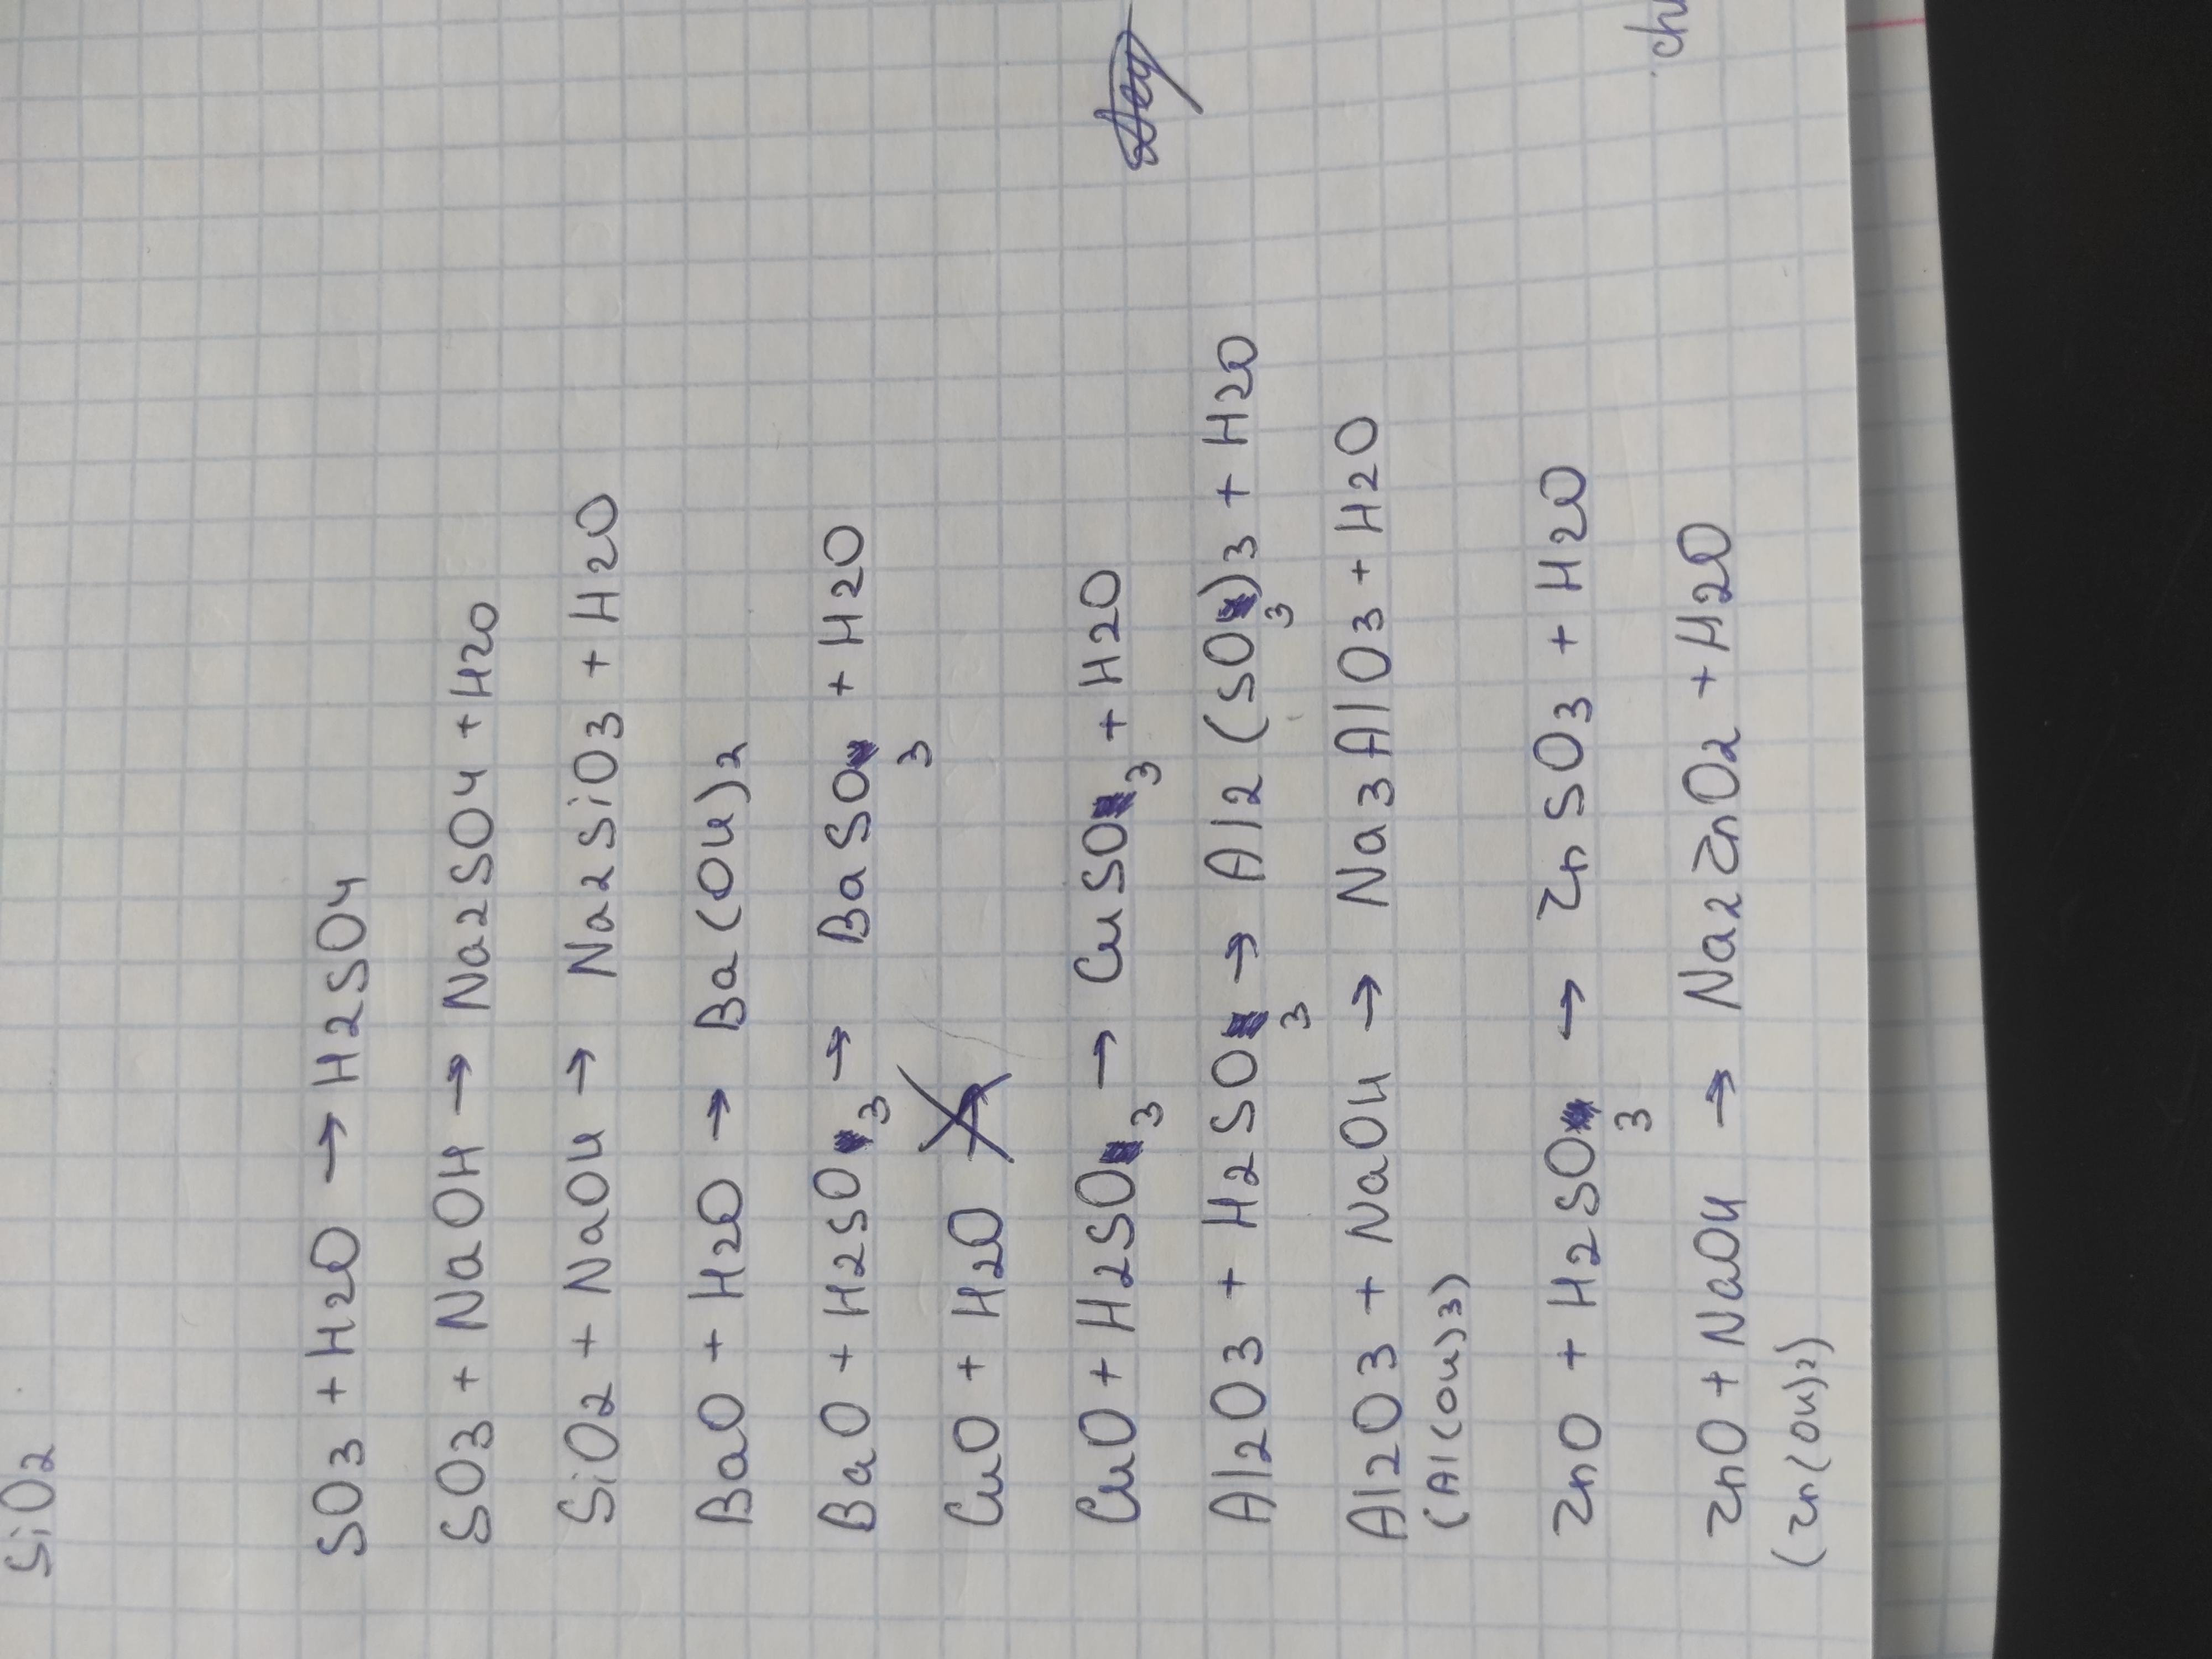 SiO2
SO3 + H2O → H2SO4
SO3 + NaOH → Na2SO4 + H2O
SiO2 + NaOH → Na2SiO3 + H2O
BaO + H2O → Ba(OH)2
BaO + H2SO3 → BaSO3 + H2O
CuO + H2O
CuO + H2SO3 → CuSO3 + H2O
Al2O3 + H2SO3 → Al2(SO3)3 + H2O
Al2O3 + NaOH → Na3AlO3 + H2O
(Al(OH)3)
ZnO + H2SO3 → ZnSO3 + H2O
ZnO + NaOH → Na2ZnO2 + H2O
(Zn(OH)2)